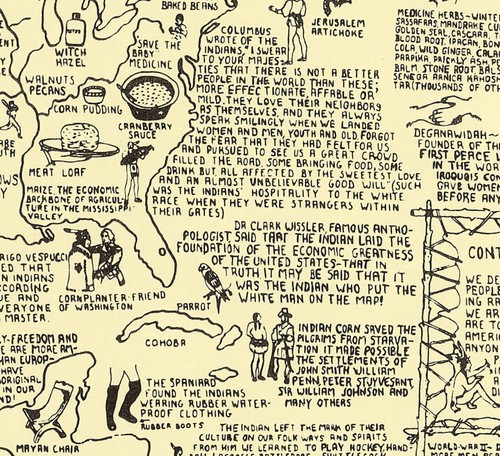 BAKED BEANS
WITCH
HAZEL
SAVE THE
BABY
MEDICINE
WALNUTS
PECANS
CORN PUDDING
CRANBERRY
SAUCE
MEAT LOAF
MAIZE, THE ECONOMIC
BACKBONE OF AGRICUL-
TURE IN THE MISSISSIPPI
VALLEY
JERUSALEM
ARTICHOKE
COLUMBUS
WROTE OF THE
INDIANS, "I SWEAR
TO YOUR MAJES-
TIES THAT THERE IS NOT A BETTER
PEOPLE IN THE WORLD THAN THESE;
MORE EFFECTIONATE, AFFABLE OR
MILD. THEY LOVE THEIR NEIGHBORS
AS THEMSELVES, AND THEY ALWAYS
SPEAK SMILINGLY WHEN WE LANDED
WOMEN AND MEN, YOUTH AND OLD, FORGOT
THE FEAR THAT THEY HAD FELT FOR US
AND PURSUED TO SEE US A GREAT CROWD
FILLED THE ROAD, SOME BRINGING FOOD, SOME
DRINK BUT ALL AFFECTED BY THE SWEETEST LOVE
AND AN ALMOST UNBELIEVABLE GOOD WILL" (SUCH
WAS THE INDIANS' HOSPITALITY TO THE WHITE
RACE WHEN THEY WERE STRANGERS WITHIN
THEIR GATES)
MEDICINE HERBS-WINTER
SASSAFRAS, MANDRAKE
GOLDEN SEAL, CASCARA,
BLOOD ROOT, IPACAN,
COLA, WILD GINGER,
PRICKLY ASH,
BALM, STONE ROOT,
SENEGA ARNICA
TAR (THOUSANDS OF
DEGANAWIDAH-
FOUNDER OF THE
FIRST PEACE
IN THE WOR
IROQUOIS CON
GAVE WOMEN
BEFORE AN
DR CLARK WISSLER, FAMOUS ANTHO-
POLOGIST SAID THAT THE INDIAN LAID THE
FOUNDATION OF THE ECONOMIC GREATNESS
OF THE UNITED STATES-THAT IN
TRUTH IT MAY BE SAID THAT IT
WAS THE INDIAN WHO PUT THE
WHITE MAN ON THE MAP!
RIGO VESPUCCI
ED THAT
N INDIANS
CCORDING
UE AND
EVERYONE
MASTER.
CORNPLANTER-FRIEND
OF WASHINGTON
PARROT
COHOBA
Y-FREEDOM AND
E ARE MORE AM-
HAN EUROP
HAVE
ORIGINAL
IN OUR
ND!
MAYAN CHAIR
THE SPANIARD
FOUND THE INDIANS
WEARING RUBBER WATER-
PROOF CLOTHING
RUBBER BOOTS
INDIAN CORN SAVED THE
PILGRIMS FROM STARVA-
TION IT MADE POSSIBLE
THE SETTLEMENTS OF
JOHN SMITH WILLIAM
PENN, PETER STUYVESANT,
SIR WILLIAM JOHNSON AND
MANY OTHERS
CONT
WE DE
PEOPLE
ING RA
WE AR
ARE TO
AMERI
ANYON
THE INDIAN LEFT THE MARK OF THEIR
CULTURE ON OUR FOLK WAYS AND SPIRITS
FROM HIM WE LEARNED TO PLAY HOCKEY, HAND-
WORLD WAR II-
MORE MEN